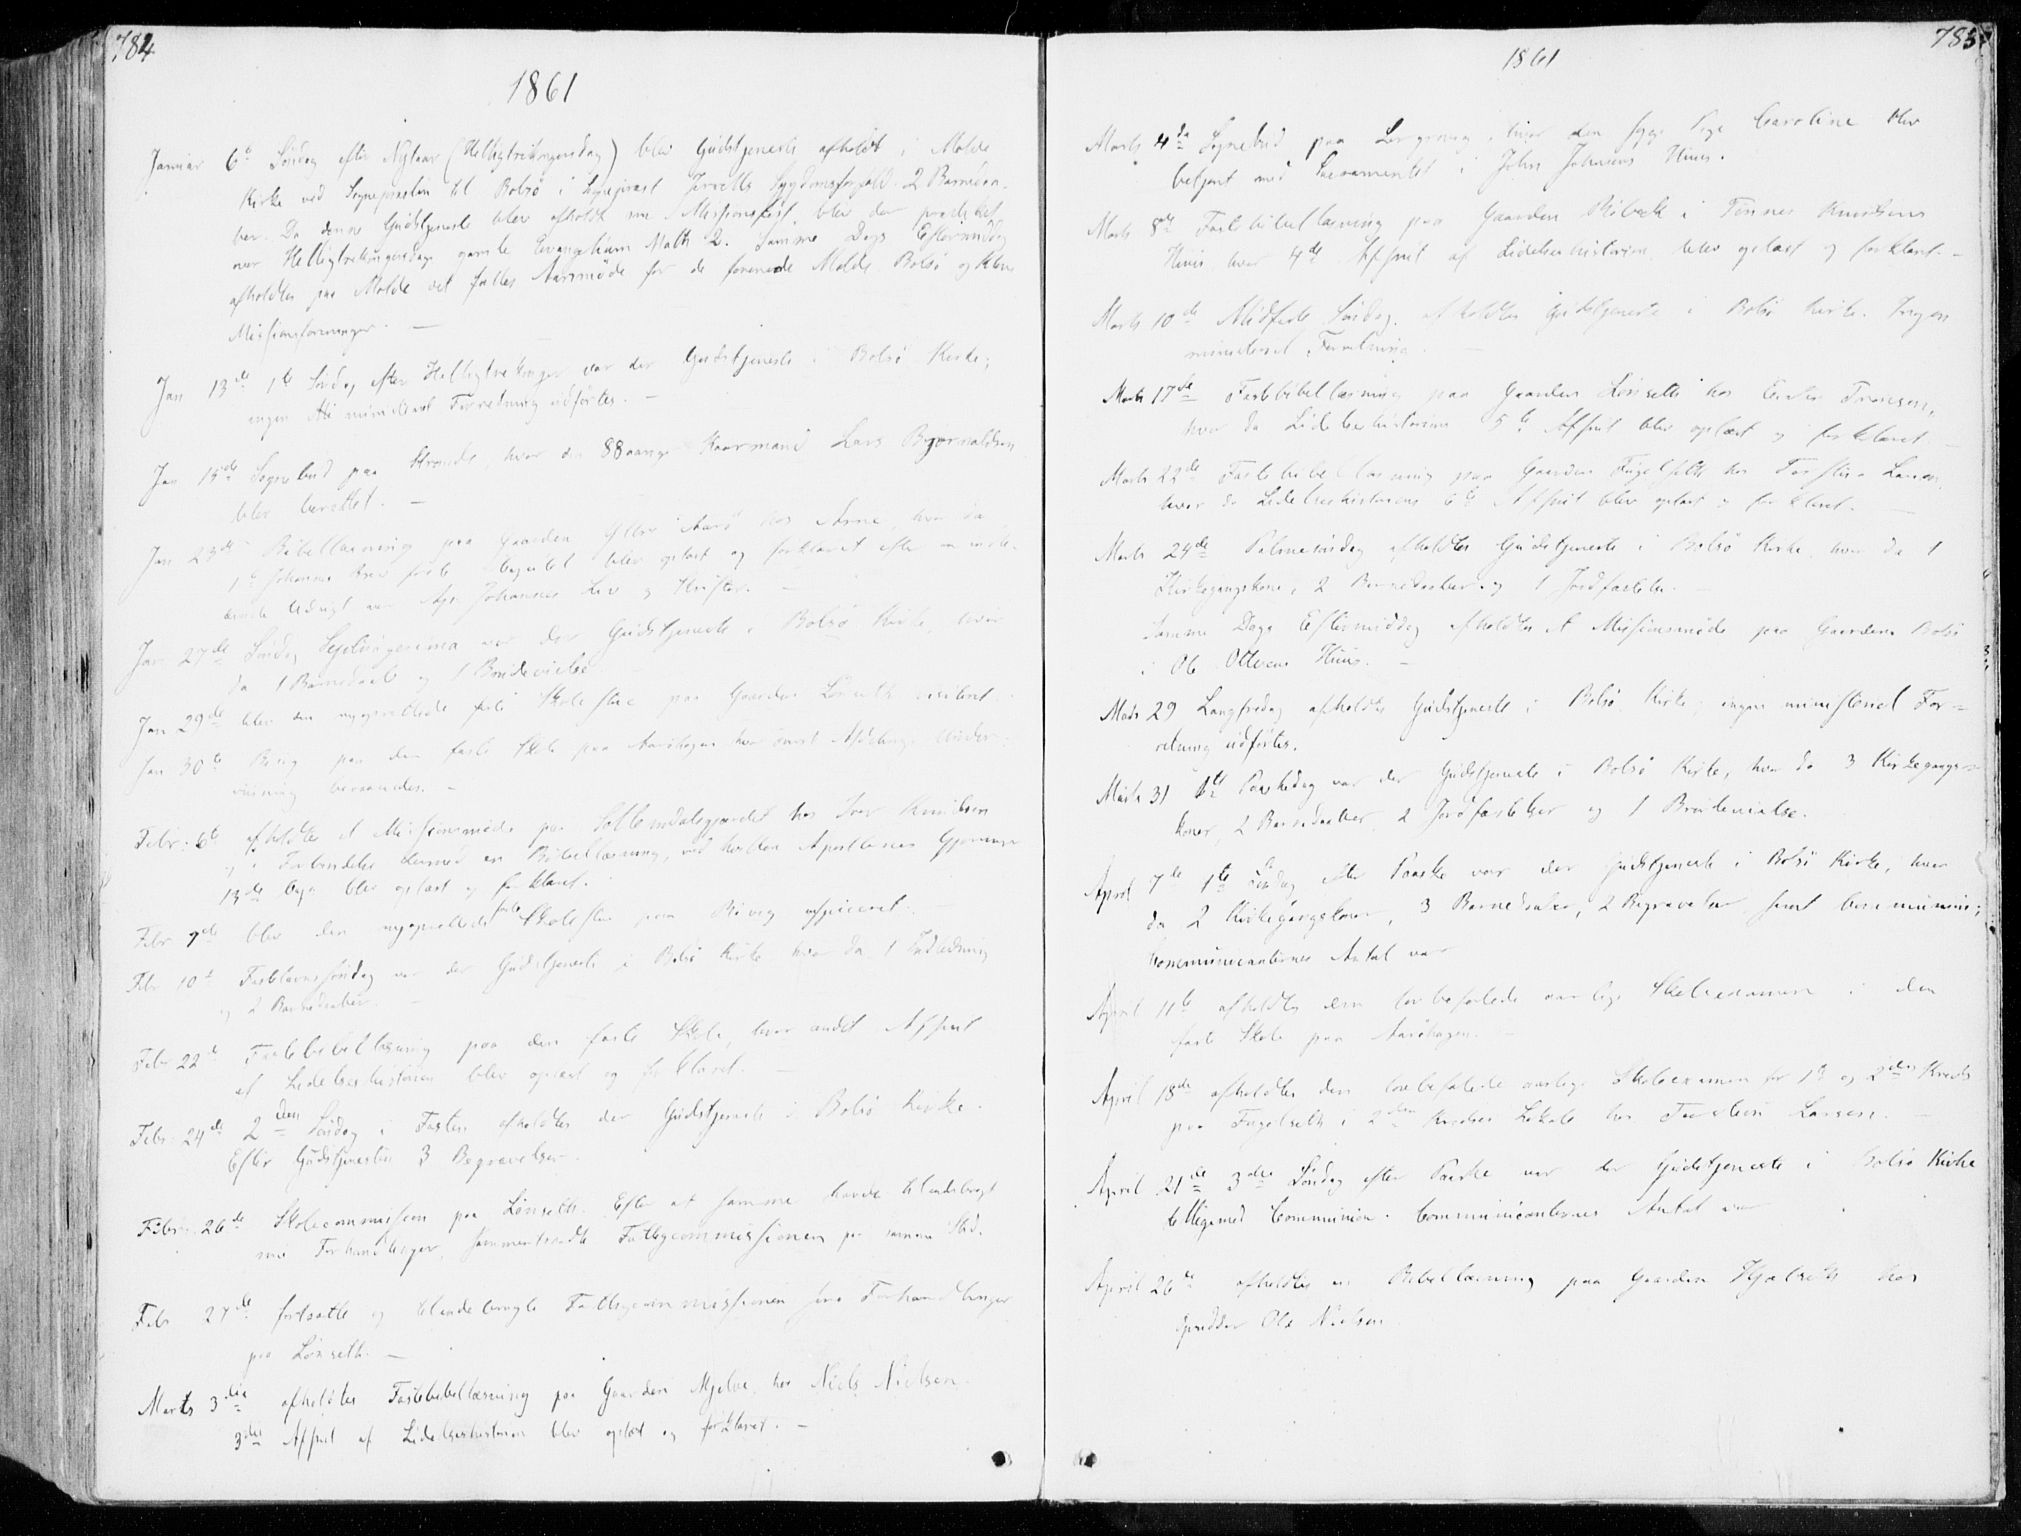 784
1861
Januar 6te Söndag efter Nytaar (Helligtrekongersdag) blev Gudstjeneste afholdt i Molde
Kirke ved Sognepresten til Bolsö i Sogneprest Sygdomsforfald. 2 Barnedaa-
ber. Da denne Gudstjeneste blev afholdt som Missionsfest, blev der prædiket
over Helligtrekongersdags gamle Evangelium Math 2. Samme Dags Eftermiddag
afholdtes paa Molde et fælles Aarsmöde for de forenede Molde, Bolsö og
Missionsforeninger. —
Jan 13de 1ste Söndag efter Helligtrekonger var der Gudstjeneste i Bolsö Kirke;
ingen ministeriel Forretning udförtes. —
Jan 15de Sognebud paa Strande, hvor den 88aarige Kaarmand Lars Bjørnaldsen
blev berettet. —
Jan 23de Bibellæsning paa Gaarden Aarö hos Arne, hvor da
1ste Johannes Brev förste Capitel blev oplæst og forklaret efter en
Udsigt over Ap. Johannes Liv og Skrifter. —
Jan 27de Söndag Septuagesima var der Gudstjeneste i Bolsö Kirke, hvor
da 1 Barnedaab og 1 Brudevielse
Jan 29de blev den nyoprettede faste Skolestue paa Gaarden Lönseth visiteret.
Jan 30te Besög paa den faste Skole paa Aaröhagen hvor Afdelings Under-
viisning —
Febr: 6te afholdtes et Missionsmöde paa hos Iver Knudsen
og i Forbindelse dermed en Bibellæsning, ved hvilken Apostlernes Gjerninger
13de Cap. blev oplæst og forklaret.
Febr 7de blev den nyoprettede faste Skolestue paa inspiceret. —
Febr 10de Fastelavnssöndag var der Gudstjeneste i Bolsö Kirke hvor da 1 Indledning
og 2 Barnedaaber. —
Febr 22de Fastebibellæsning paa den faste Skole, hvor andet Afsnit
af Lidelseshistorien blev oplæst og forklaret. —
Febr: 24de 2den Söndag i Fasten afholdtes der Gudstjeneste i Bolsö Kirke.
Efter Gudstjenesten 3 Begravelser.
Febr: 26de Skolecommission paa Lönseth. Efter at samme havde tilendebragt
sine Forhandlinger, sammentraadte Fattigcommissionen paa samme Sted.
Febr 27de fortsatte og tilendebragte Fattigcommissionen sine Forhandlinger
paa Lönseth. —
Marts 3die afholdtes Fastebibellæsning paa Gaarden Mjelve hos Niels Nielsen.
3die Afsnit af Lidelseshistorien blev oplæst og forklaret. —
785
1861
Marts 4de Sognebud paa hvor den syge Pige Caroline blev
betjent med Sacramentet i John Johnsens Huus.
Marts 8de Fastebibellæsning paa Gaarden Röbek i Tönnes Knudsens
Huus hvor 4de Afsnit af Lidelseshistorien blev oplæst og forklaret. —
Marts 10de Midfaste Söndag. afholdtes Gudstjeneste i Bolsö Kirke. Ingen
ministeriel Forretning. —
Marts 17de Fastebibellæsning paa Gaarden Lönseth hos
hvor da Lidelseshistoriens 5te Afsnit blev oplæst og forklaret —
Marts 22de Fastebibellæsning paa Gaarden Fugelseth hos Torsten Larsen
hvor da Lidelseshistoriens 6te Afsnit blev oplæst og forklaret. —
Marts 24de Palmesöndag afholdtes Gudstjeneste i Bolsö Kirke, hvor da 1
Kirkegangskone, 2 Barnedaaber og 1 Jordfæstelse. —
Samme Dags Eftermiddag afholdtes et Missionsmöde paa Gaarden Bolsö
i Ole Ottesens Huus. —
Marts 29 Langfredag afholdtes Gudstjeneste i Bolsö Kirke; ingen ministeriel For=
retning udförtes.
Marts 31 1ste Paaskedag var der Gudstjeneste i Bolsö Kirke, hvor da 3 Kirkegangs=
koner, 2 Barnedaaber, 2 Jordfæstelser og 1 Brudevielse.
April 7de 1ste Söndag efter Paaske var der Gudstjeneste i Bolsö Kirke, hvor
da 2 Kirkegangskoner, 3 Barnedaaber, 2 Begravelser samt Communion;
Communicanternes Antal var
April 11te afholdtes den lovbefalede aarlige Skoleexamen i den
faste Skole paa Aaröhagen. —
April 18de afholdtes den lovbefalede aarlige Skoleexamen for 1ste og 2den Kreds
paa Fugelseth i 2den Kredses Lokale hos Torsten Larsen. —
April 21de 3die Söndag efter Paaske var der Gudstjeneste i Bolsö Kirke
tilligemed Communion. Communicanternes Antal var
April 26de afholdtes en Bibellæsning paa Gaarden Hjelseth hos
Opsidder Ole Nielsen.